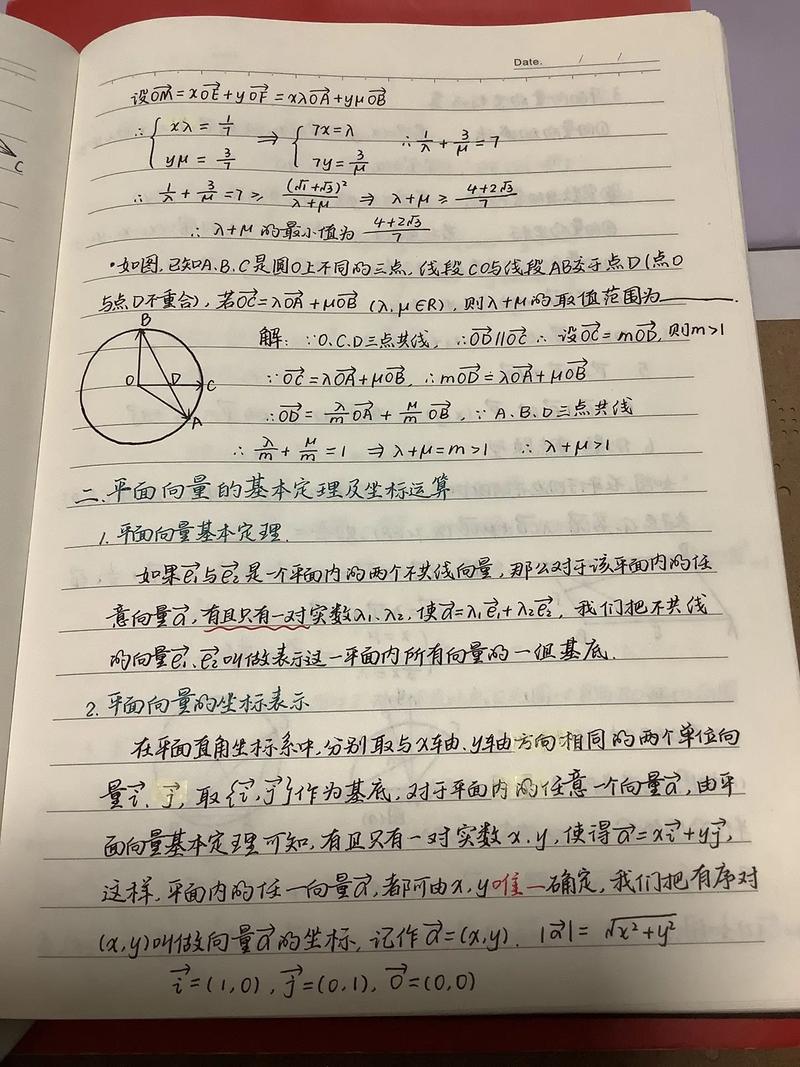 Date. / /
设OM⃗=xOE⃗+yOF⃗=xλOA⃗+yμOB⃗
∴{xλ=1/7, yμ=3/7 ⇒ {7x=λ, 7y=3/μ ∴1/λ+3/μ=7
∴ 1/λ+3/μ=7≥(√1+√3)²/(λ+μ) ⇒ λ+μ≥(4+2√3)/7
∴ λ+μ的最小值为(4+2√3)/7
·如图,已知A.B.C是圆O上不同的三点,线段CO与线段AB交于点D(点O
与点D不重合),若OC⃗=λOA⃗+μOB⃗(λ,μ∈R),则λ+μ的取值范围为______.
B
O D C
A
C
解:∵O.C.D三点共线,∴OD⃗∥OC⃗ ∴设OC⃗=mOD⃗,则m>1
∵OC⃗=λOA⃗+μOB⃗,∴mOD⃗=λOA⃗+μOB⃗
∴OD⃗=λ/m OA⃗+μ/m OB⃗,∵A.B.D三点共线
∴λ/m+μ/m=1 ⇒λ+μ=m>1 ∴λ+μ>1
二.平面向量的基本定理及坐标运算
1.平面向量基本定理.
如果e₁⃗与e₂⃗是一个平面内的两个不共线向量,那么对于该平面内的任
意向量a⃗,有且只有一对实数λ₁、λ₂,使a⃗=λ₁e₁⃗+λ₂e₂⃗,我们把不共线
的向量e₁⃗、e₂⃗叫做表示这一平面内所有向量的一组基底.
2.平面向量的坐标表示
在平面直角坐标系中,分别取与x轴、y轴方向相同的两个单位向
量i⃗、j⃗,取{i⃗,j⃗}作为基底,对于平面内的任意一个向量a⃗,由平
面向量基本定理可知,有且只有一对实数x.y,使得a⃗=xi⃗+yj⃗,
这样,平面内的任一向量a⃗,都可由x,y唯一确定,我们把有序对
(x,y)叫做向量a⃗的坐标,记作a⃗=(x,y). |a⃗|=√(x²+y²)
i⃗=(1,0),j⃗=(0,1),0⃗=(0,0)